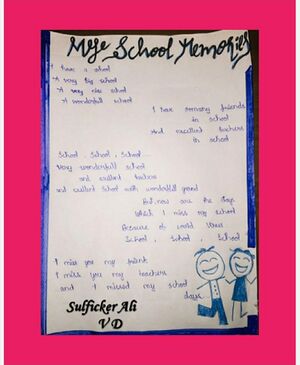 Mye School Memories
I have a school
A very big school
A very nice school
A wonderfull school
I have somany friends
in school
And excelled teachers
in school
School, School, School...
Very wonderfull school
and excelled teachers
and excelled School with wonderfull grand
But, now are the days
Which I miss my school
Because of Covid Virus
School, School, School
I miss you my friend
I miss you my teachers
and I missed my school
days.
Sulficker Ali
V D